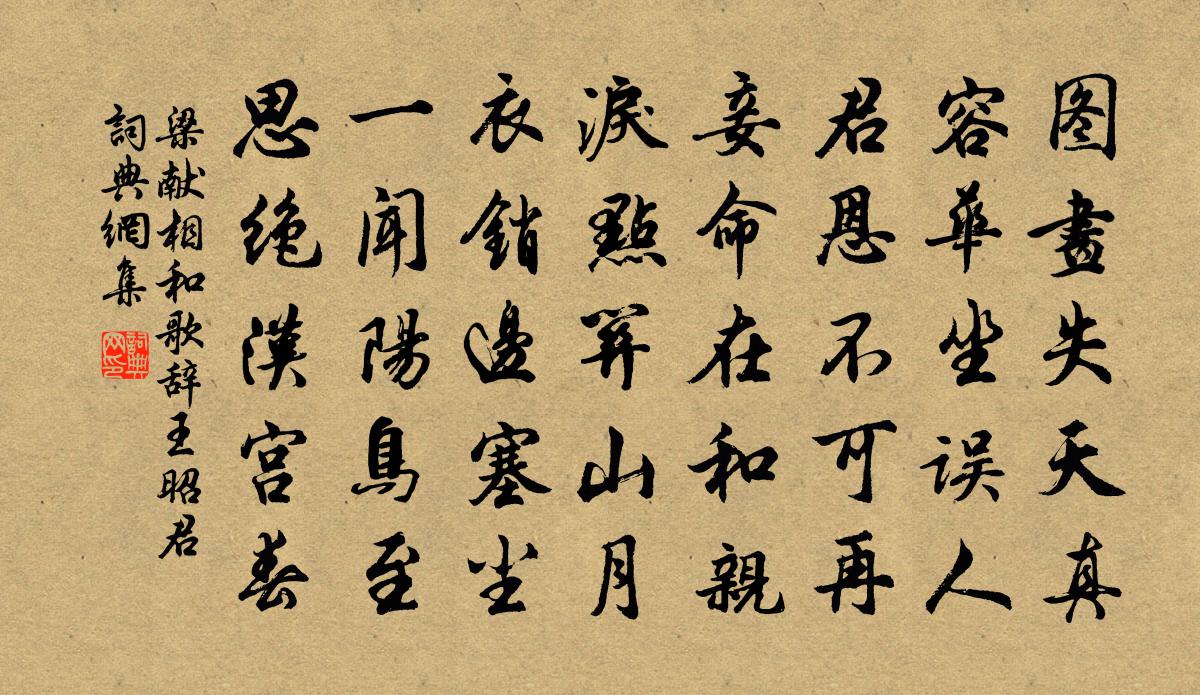 图畫失天真
容華坐误人
君恩不可再
妾命在和親
淚點関山月
衣銷邊塞尘
一闻陽鳥至
思绝漢宫春
梁献相和歌辞王昭君
詞典網集
詞典網印